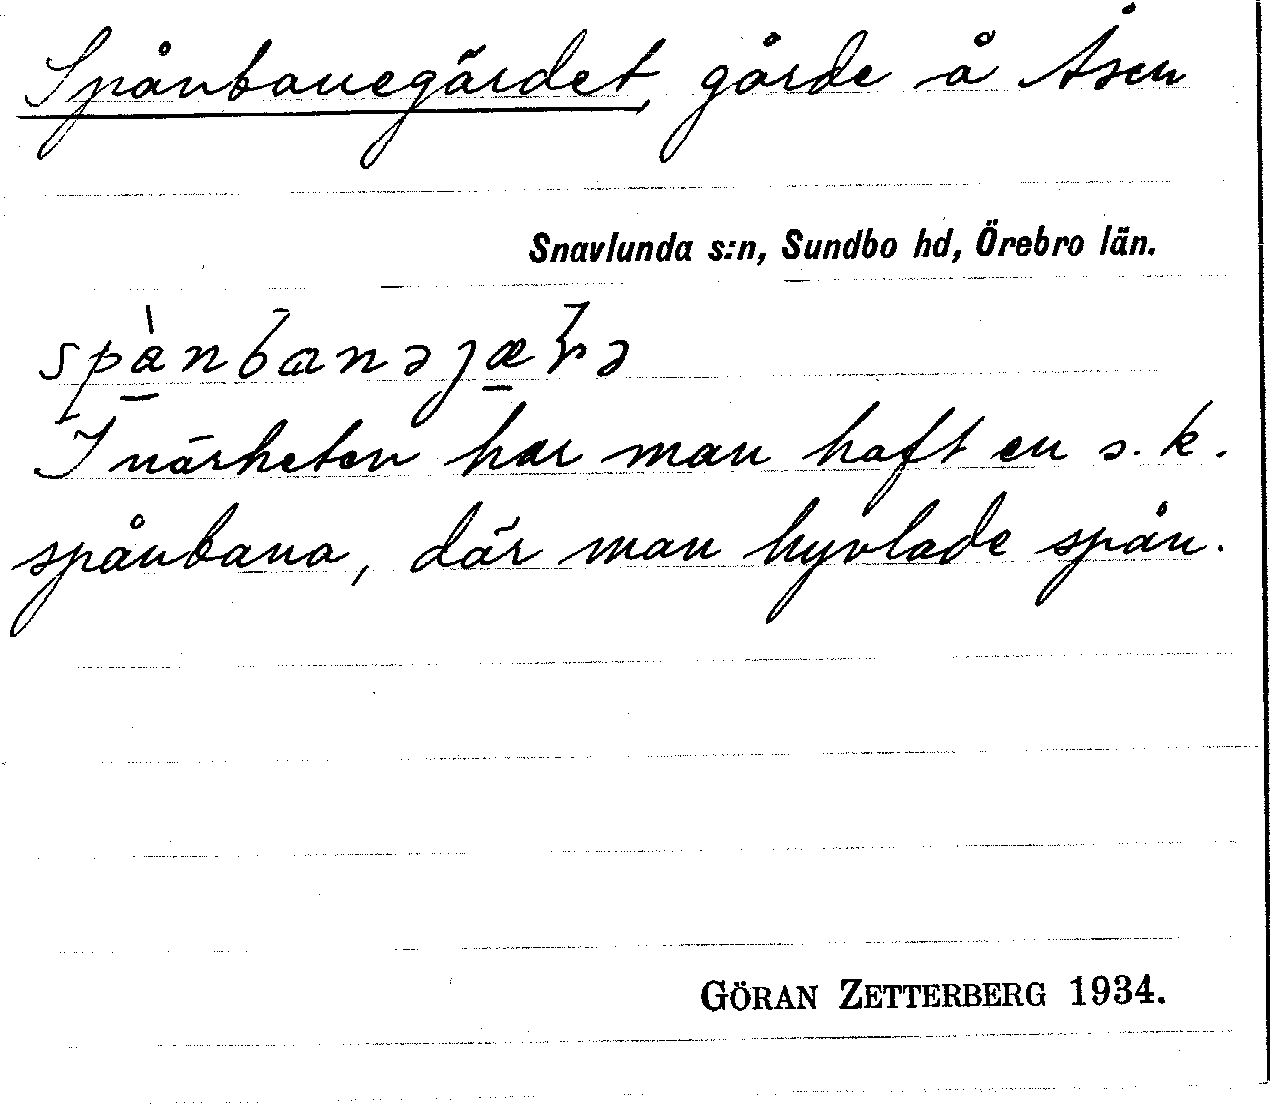 Spånbanegärdet, gärde å Åsen
Snavlunda s:n, Sundbo hd, Örebro län.
I närheten har man haft en s.k.
spånbana, där man hyvlade spån.
GÖRAN ZETTERBERG 1934.